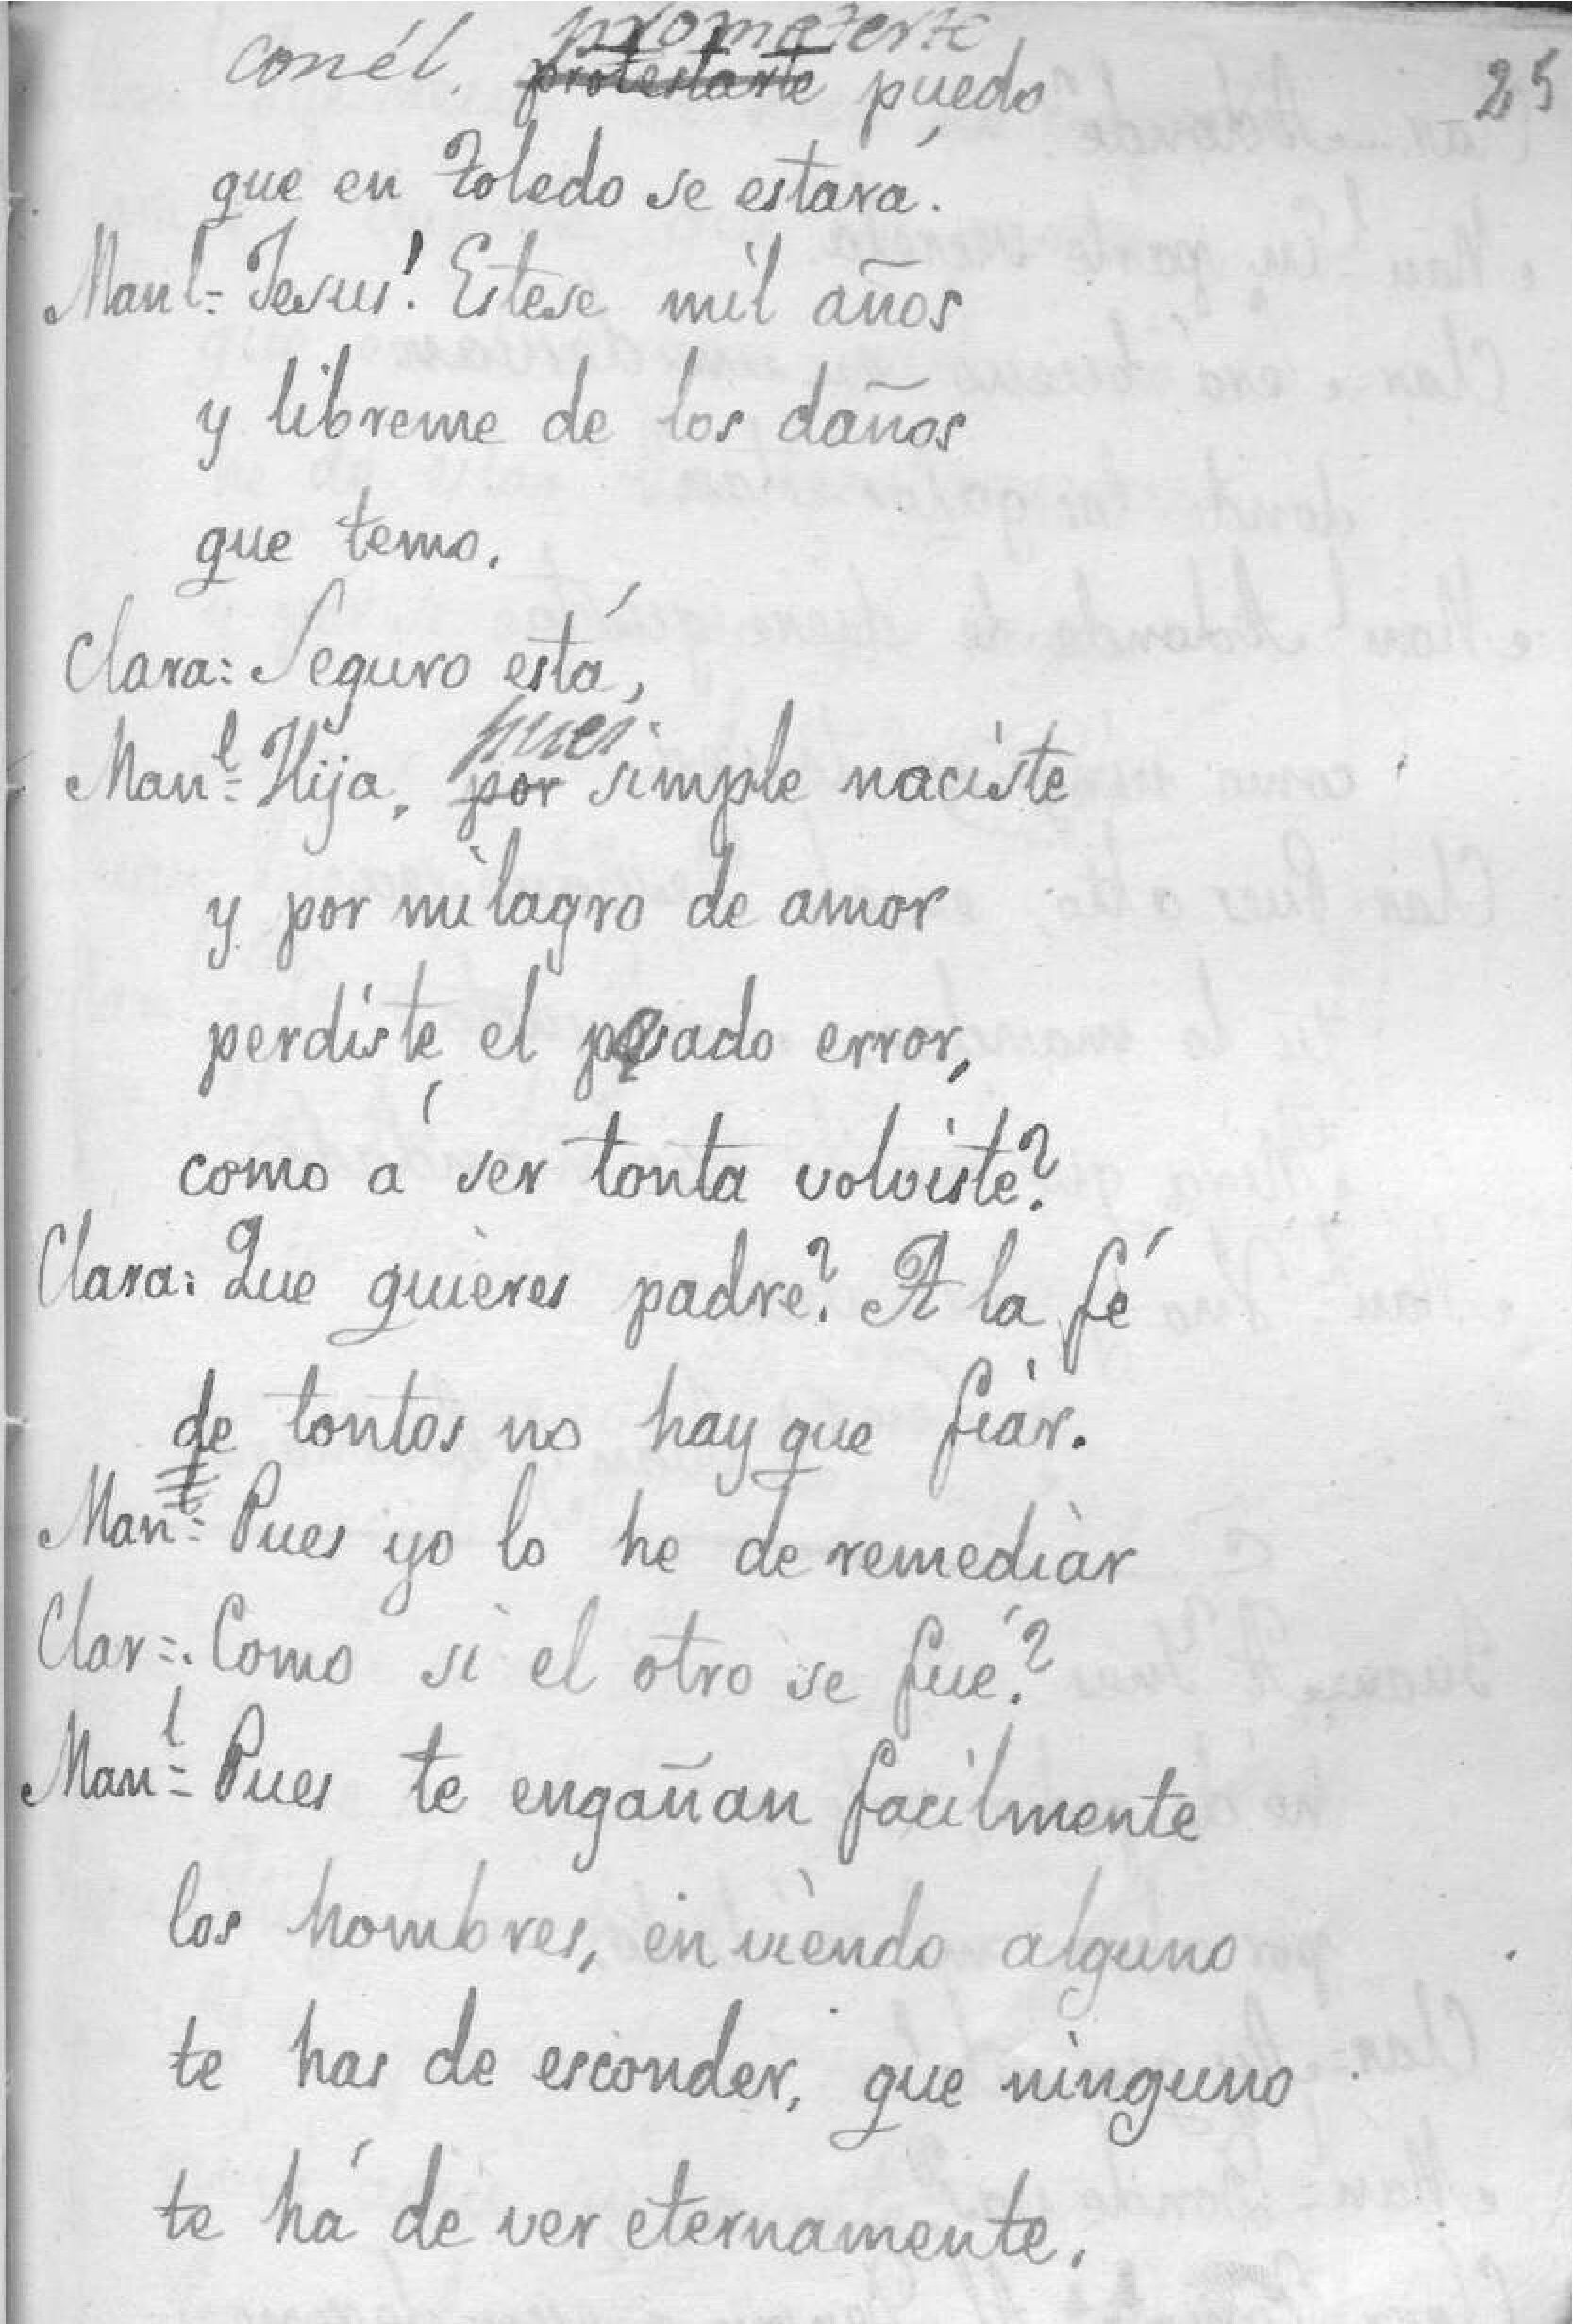 prometerte
con él, protestarte puedo 25
que en Toledo se estará.
Manl= Jesus! Estese mil años
y libreme de los daños
que temo.
Clara: Seguro está,
pues
Manl= Hija, por simple naciste
y por milagro de amor
perdiste el pasado error,
como á ser tonta volviste?
Clara: Que quieres padre? A la fé
de tontos no hay que fiar.
Manl= Pues yo lo he de remediar
Clar=. Como si el otro se fué?
Manl= Pues te engañan facilmente
los hombres, en viendo alguno
te has de esconder, que ninguno
te há de ver eternamente.